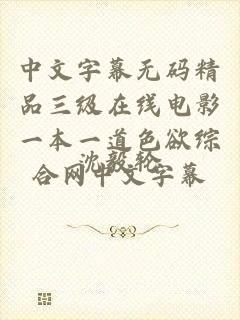 中文字幕无码精
品三级在线电影
一本一道色欲综
合网中文字幕
沈毅轮